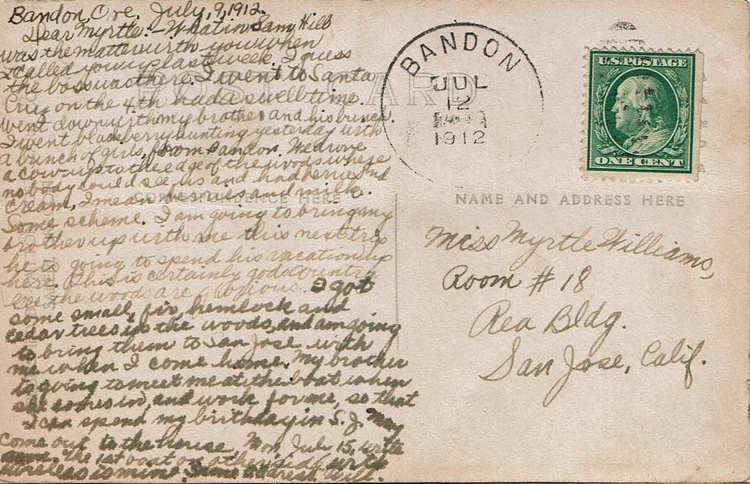 Bandon, Ore. July, 9, 1912.
Dear Myrtle:- What in Sam Hill
was the matter with you when
I called you up last week, I guess
the boss was there. I went to Santa
Cruz on the 4th had a swell time.
Went down with my brother and his bunch.
I went blackberry hunting yesterday with
a bunch of girls, from Bandon. We drove
a cow up to the edge of the woods where
nobody could see us and had berries and
cream, I mean berries and milk.
Some scheme. I am going to bring my
brother up with me this next trip
he is going to spend his vacation up
here. This is certainly gods country
the woods are
I got
some small, fir, hemlock and
cedar trees in the woods, and am going
to bring them to San Jose with
me when I come home. My brother
is going to meet me at the boat when
she comes in, and work for me, so that
I can spend my birthday in S. J. May
come out to the house. Mon. July 15, write
The 1st boat on other side with
wireless is mine. Same address. Will.
POST CARD
CORRESPONDENCE HERE
BANDON
JUL
12
1912
U.S. POSTAGE
ONE CENT
NAME AND ADDRESS HERE
Miss Myrtle Williams,
Room # 18
Rea Bldg.
San Jose, Calif.